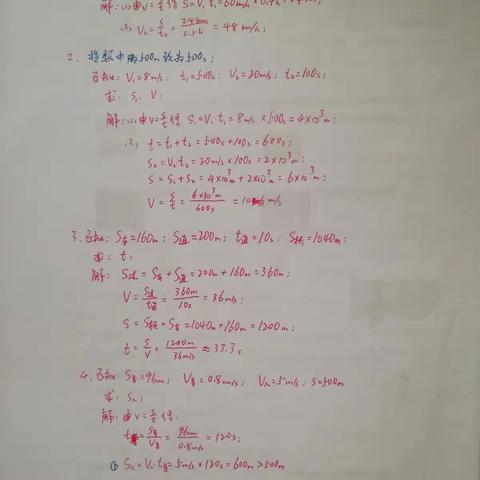 解:(1)由V=S/t得 S=V₁t₁=60km/h×0.4h=24km
(2) V₂=S/t₂=24km/0.5h=48km/h;
2、将题中的500m改为500s;
已知: V₁=8m/s; t₁=500s; V₂=20m/s; t₂=100s;
求: S₁ V;
解:(1)由V=S/t得 S₁=V₁t₁=8m/s×500s=4×10³m;
(2) t=t₁+t₂=500s+100s=600s;
S₂=V₂t₂=20m/s×100s=2×10³m;
S=S₁+S₂=4×10³m+2×10³m=6×10³m;
V=S/t=6×10³m/600s=10m/s
3、已知: S车=160m; S道=200m; t道=10s; S桥=1040m;
求: t;
解: S过=S车+S道=200m+160m=360m;
V=S过/t道=360m/10s=36m/s;
S=S桥+S车=1040m+160m=1200m;
t=S/V=1200m/36m/s≈33.3s
4、已知: S导=96cm; V导=0.8cm/s; V人=5m/s; S=500m
求: S人;
解: 由V=S/t得:
t=S导/V导=96cm/0.8cm/s=120s;
① S人=V人t导=5m/s×120s=600m>500m